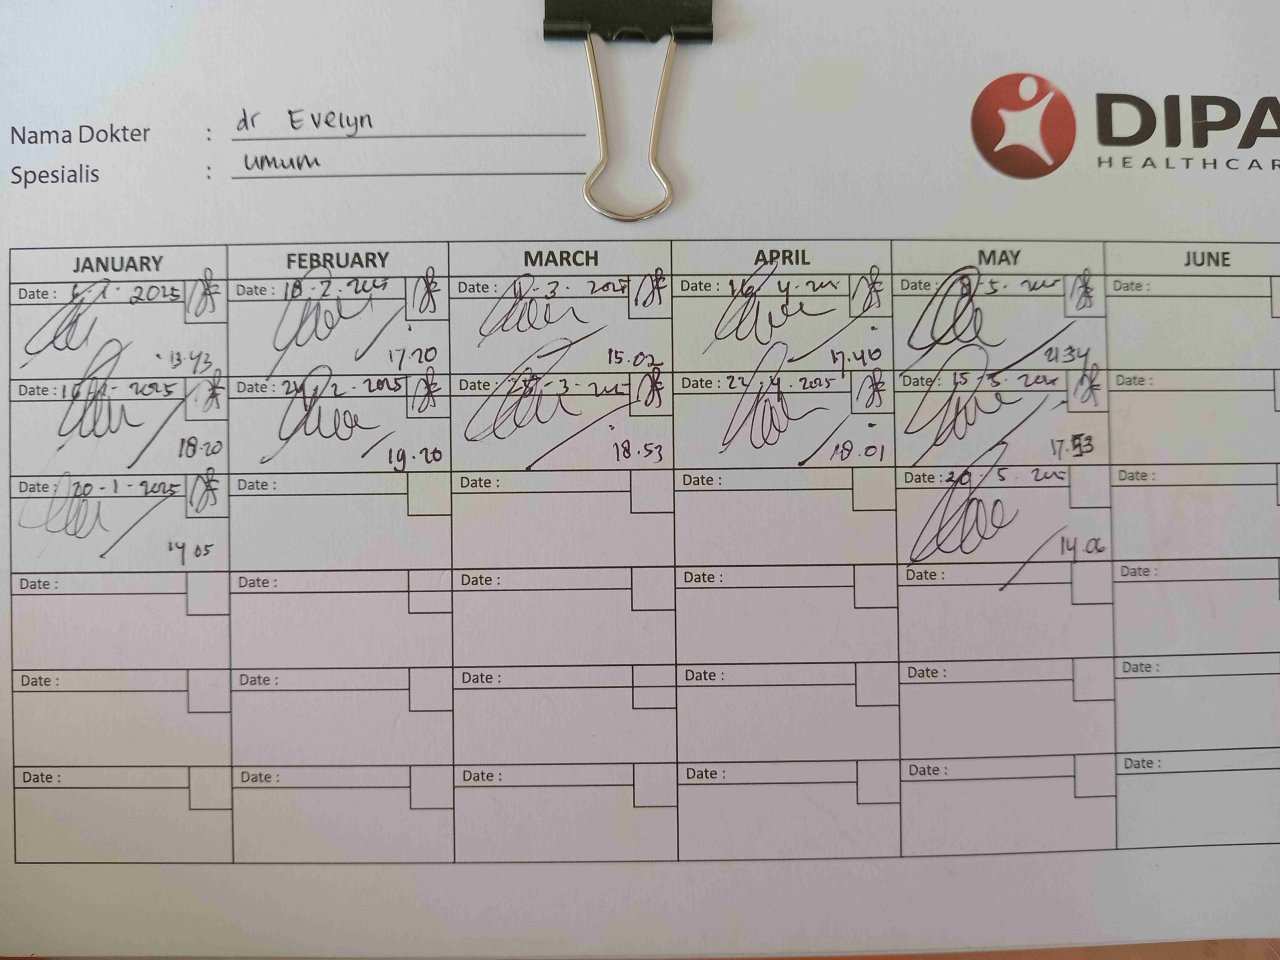 Nama Dokter : dr Evelyn
Spesialis : umum
DIPA
HEALTHCAR
JANUARY FEBRUARY MARCH APRIL MAY JUNE
Date : 2025 Date : 18-2- Date : -3- Date : 16-4- Date : -5- Date :
13.43 17.20 15.02 17.40 21.34
Date : -2025 Date : 24-2-2025 Date : -3- Date : 22-4-2025 Date : 15-5- Date :
18.20 19.20 18.53 18.01 17.53
Date : 20-1-2025 Date : Date : Date : Date : 20-5- Date :
14.05 14.06
Date : Date : Date : Date : Date : Date :
Date : Date : Date : Date : Date : Date :
Date : Date : Date : Date : Date : Date :